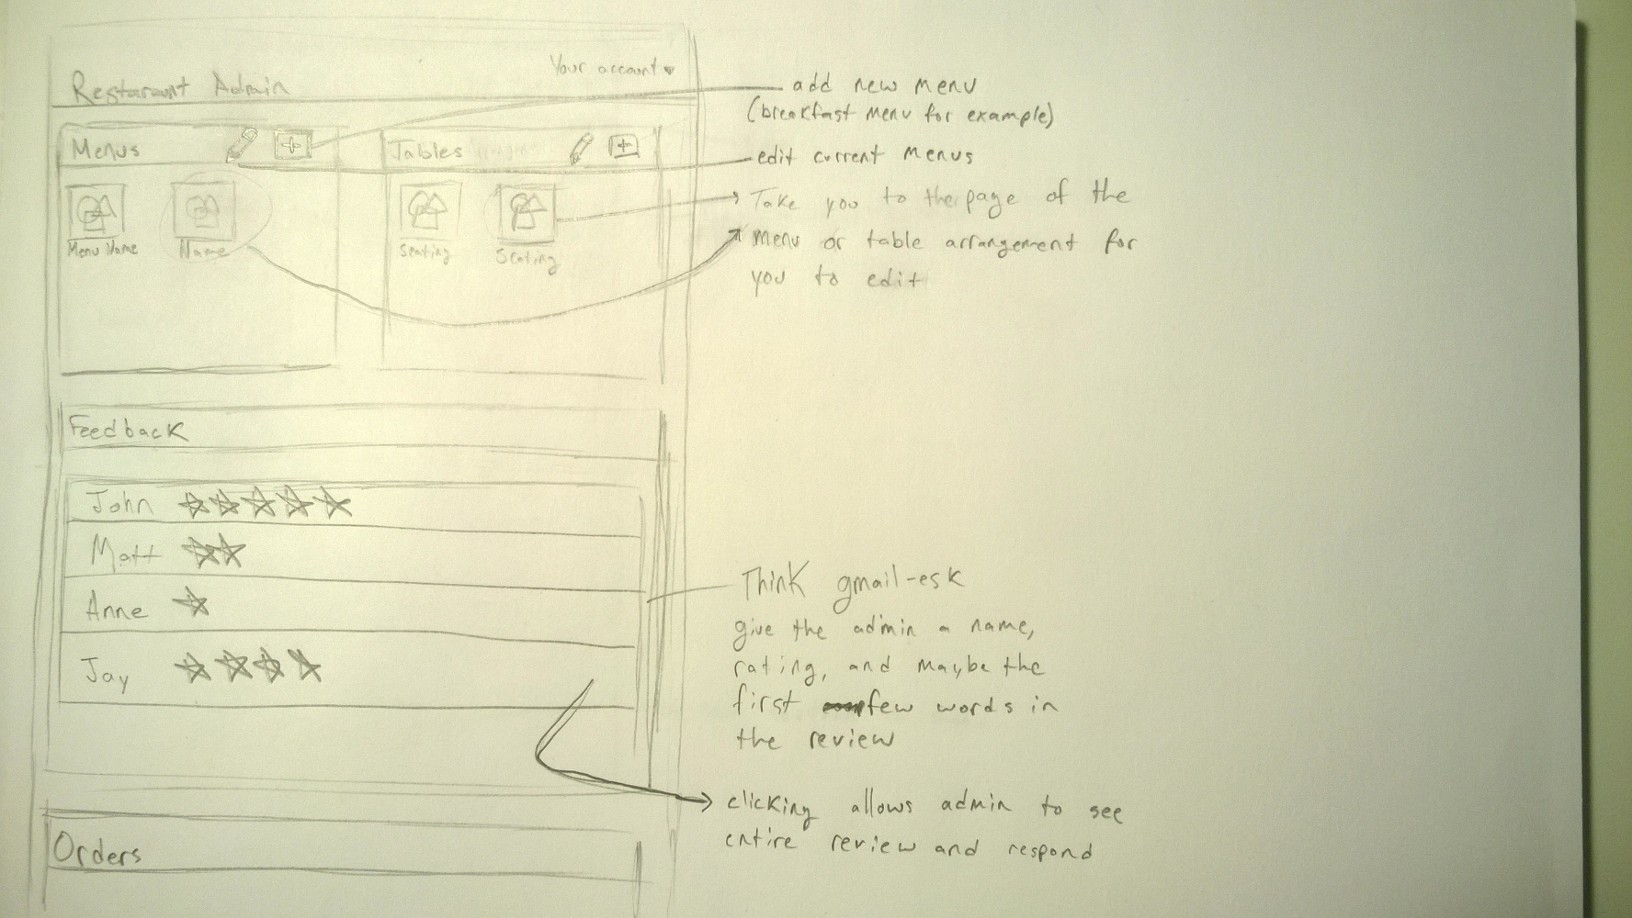 Your account
Restaraunt Admin
Menus
Tables
Menu Name
Name
Seating
Seating
add new menu
(breakfast menu for example)
edit current menus
Take you to the page of the
menu or table arrangement for
you to edit
Feedback
John
Matt
Anne
Jay
Think gmail-esk
give the admin a name,
rating, and maybe the
first few words in
the review
clicking allows admin to see
entire review and respond
Orders